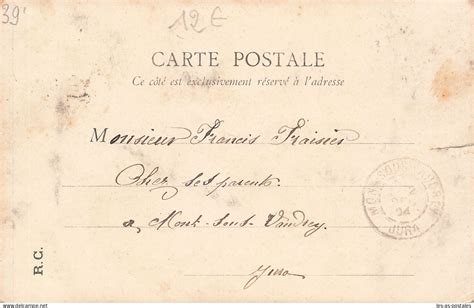 39'
12€
CARTE POSTALE
Ce côté est exclusivement réservé à l'adresse
Monsieur Francis Fraisier
Chez ses parents
a Mont-sous-Vaudrey
Jura
R.C.
MONT-SOUS-VAUDREY
JURA
les-as-postales